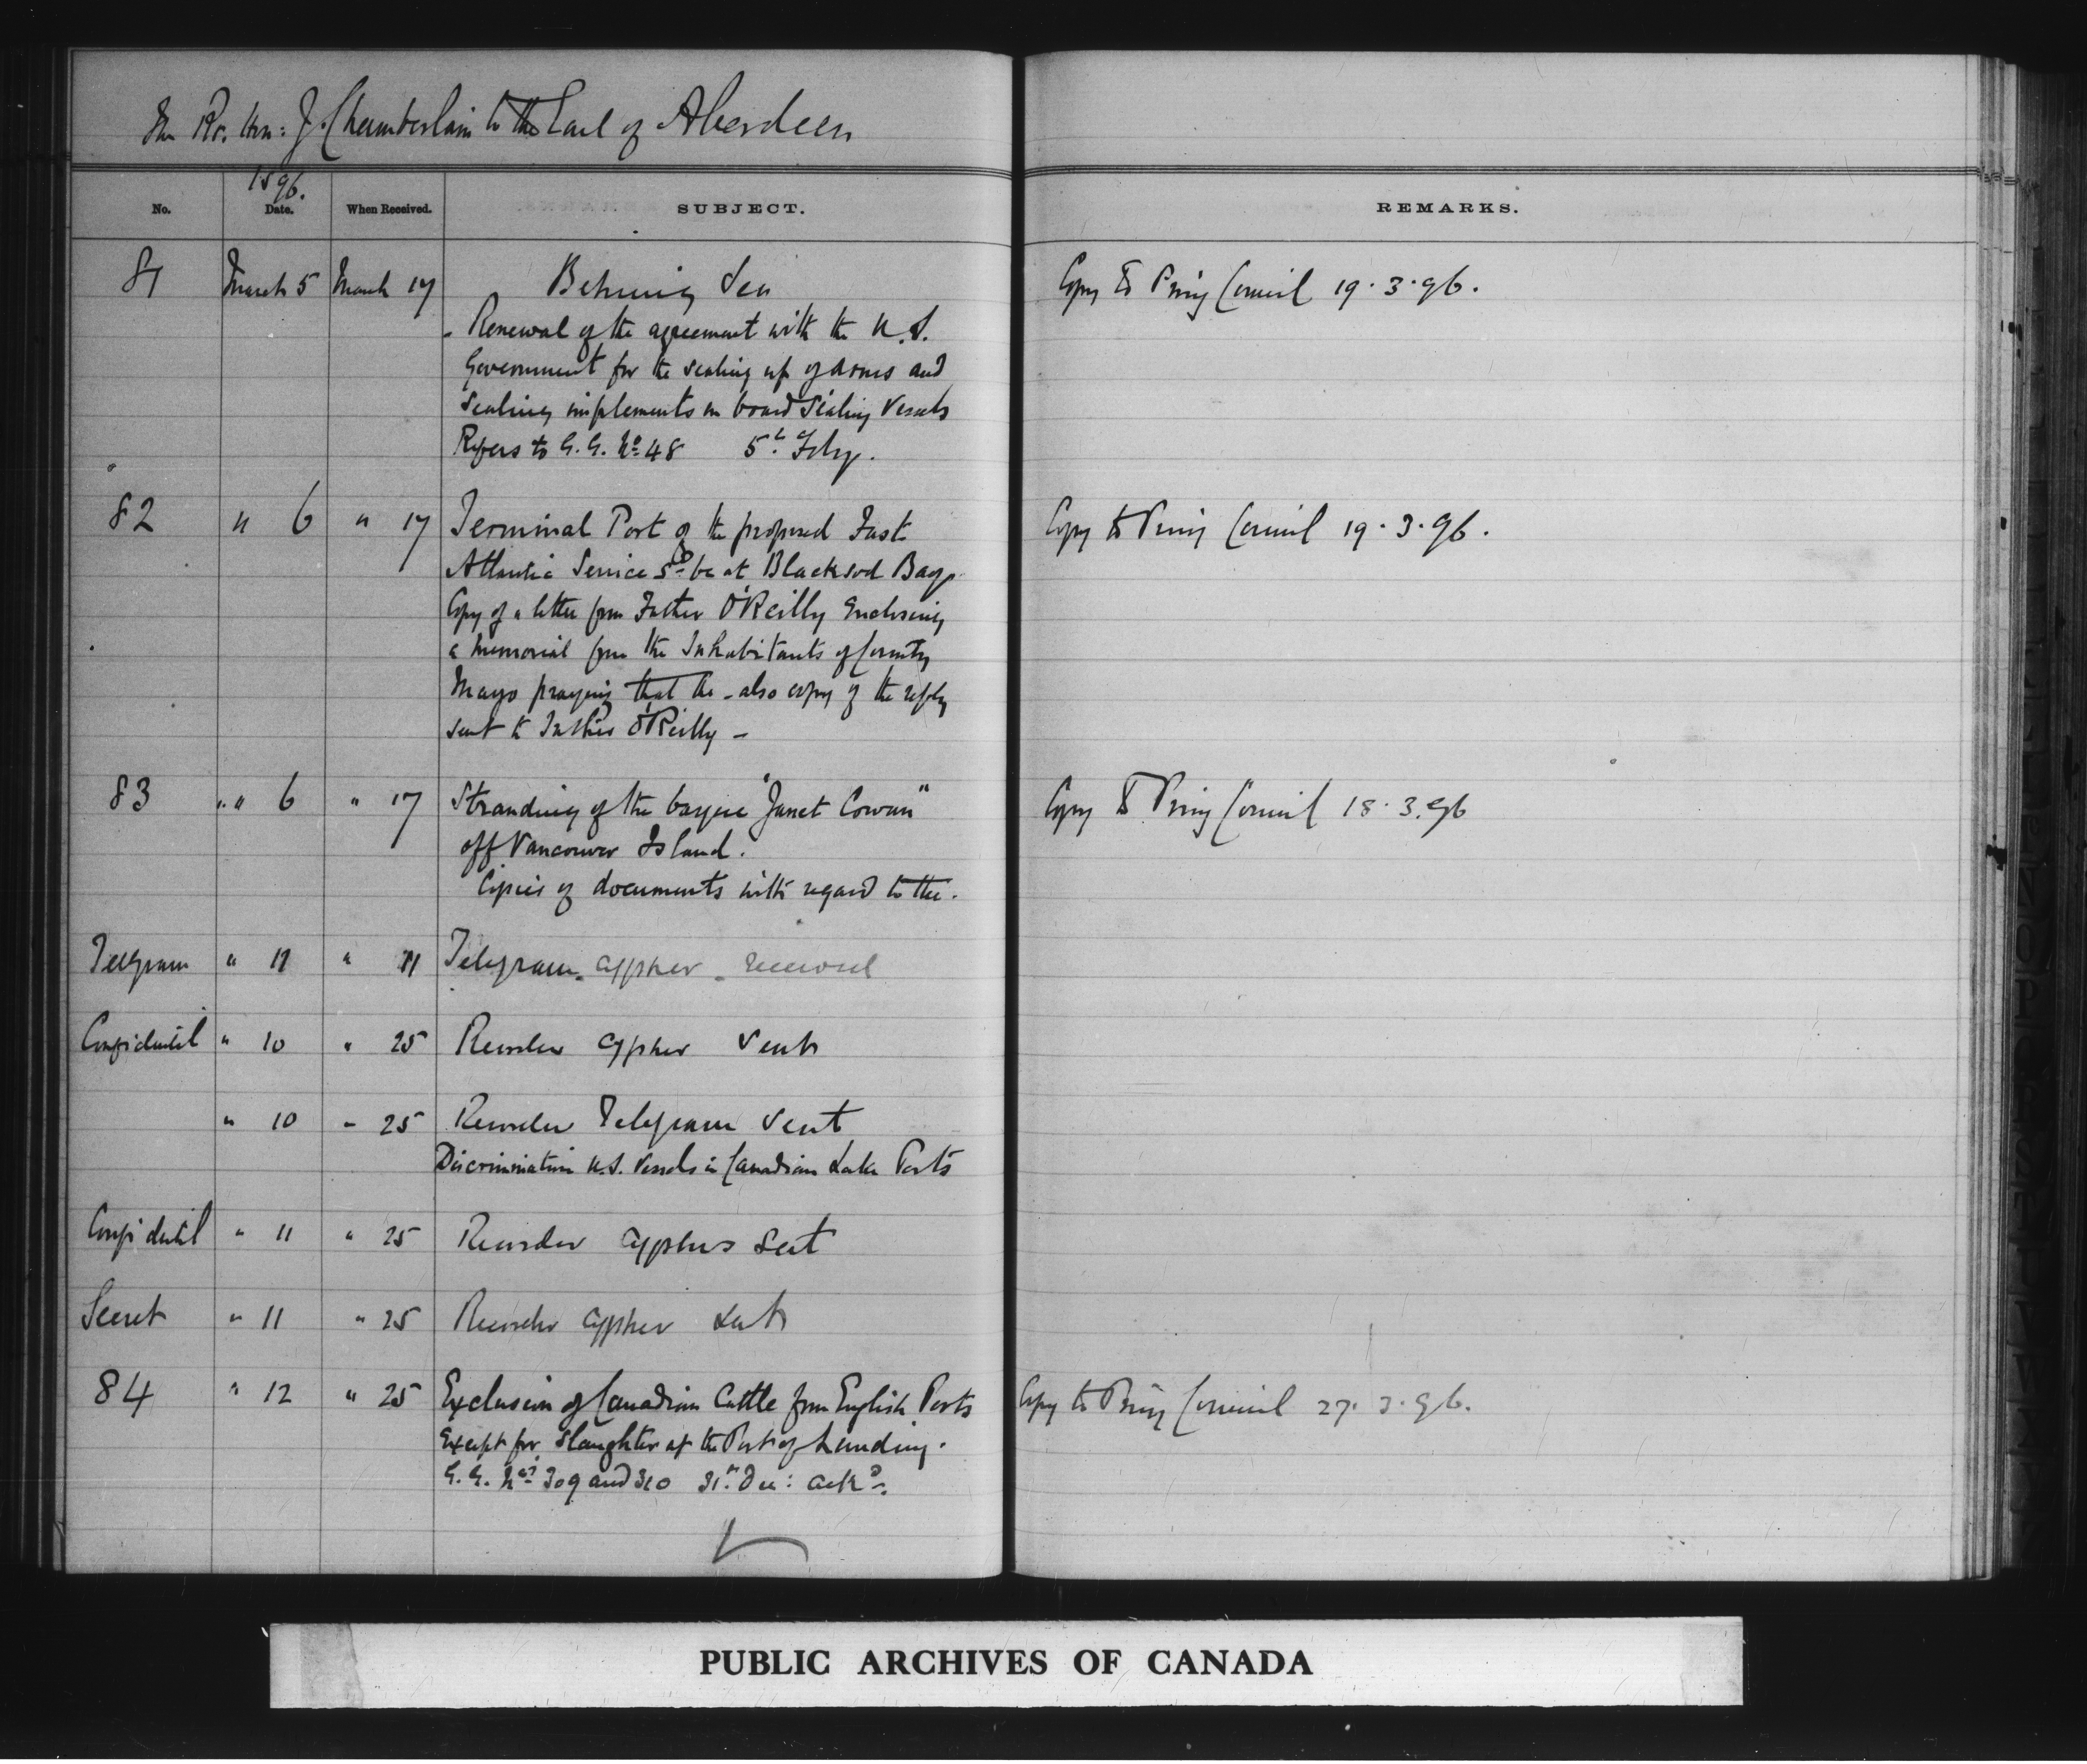 The Rt. Hon: J. Chamberlain to the Earl of Aberdeen
1896.
No. Date. When Received. SUBJECT. REMARKS.
81 March 5 March 17 Behring Sea Copy to Privy Council 19.3.96.
- Renewal of the agreement with the U.S.
Government for the sealing up of arms and
Sealing implements on board Sealing Vessels
Refers to G.G. No 48 5th Feby.
82 " 6 " 17 Terminal Port of the proposed Fast Copy to Privy Council 19.3.96.
Atlantic Service sd be at Blacksod Bay
Copy of a letter from Father O'Reilly Enclosing
a Memorial from the Inhabitants of County
Mayo praying that the - also copy of the reply
sent to Father O'Reilly -
83 " " 6 " 17 Stranding of the barque "Janet Cowan" Copy to Privy Council 18.3.96
off Vancouver Island.
Copies of documents with regard to the.
Telegram " 11 " 11 Telegram - cypher - received
Confidential " 10 " 25 Recorder cypher sent
" 10 " 25 Recorder Telegram sent
Discrimination U.S. Vessels in Canadian Lake Ports
Confidential " 11 " 25 Recorder cyphers sent
Secret " 11 " 25 Recorder cypher sent
84 " 12 " 25 Exclusion of Canadian Cattle from English Ports Copy to Privy Council 27.3.96.
Except for Slaughter at the Port of Landing.
G.G. Nos 309 and 310 31st Dec: ackd.
PUBLIC ARCHIVES OF CANADA